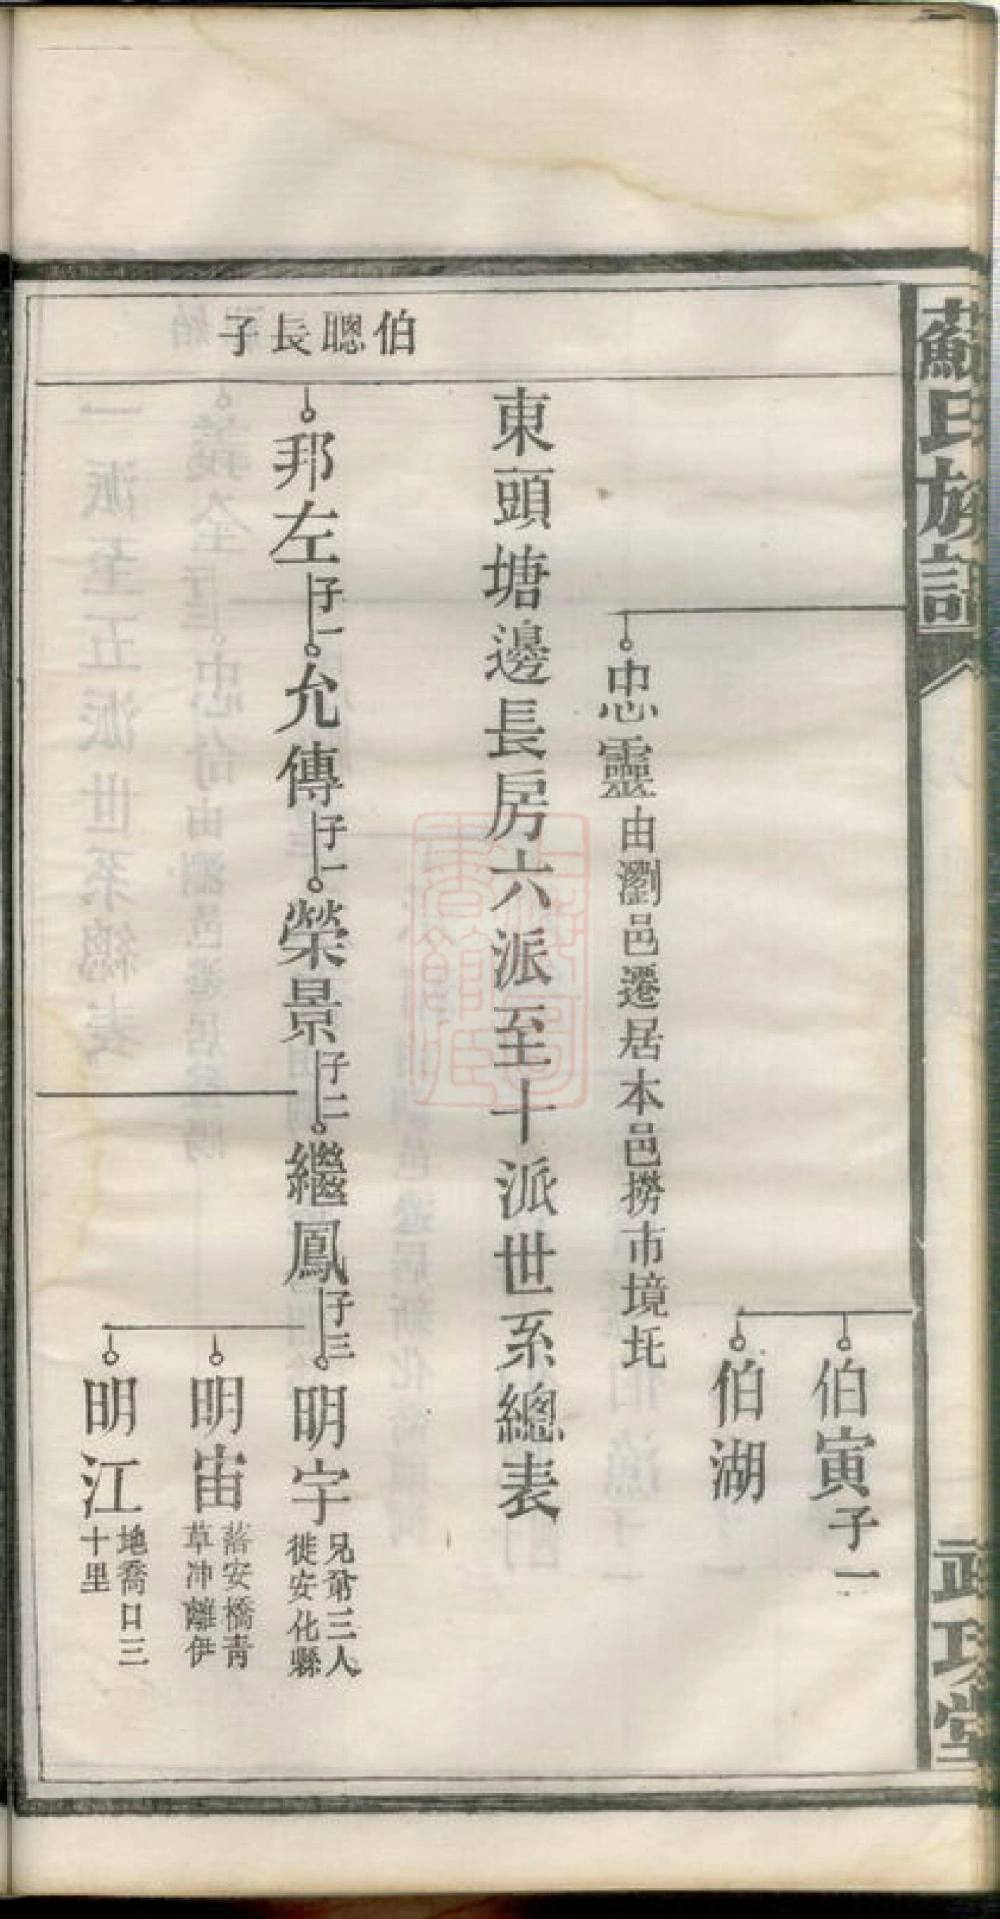 蘇氏族譜
武功堂
伯寅子一
伯湖
忠靈由瀏邑遷居本邑撈市境坉
東頭塘邊長房六派至十派世系總表
伯聰長子
邦左子一允傳子一榮景子二繼鳳子三明宇兄弟三人
徙安化縣
明宙落安橋青
草冲離伊
明江地喬口三
十里